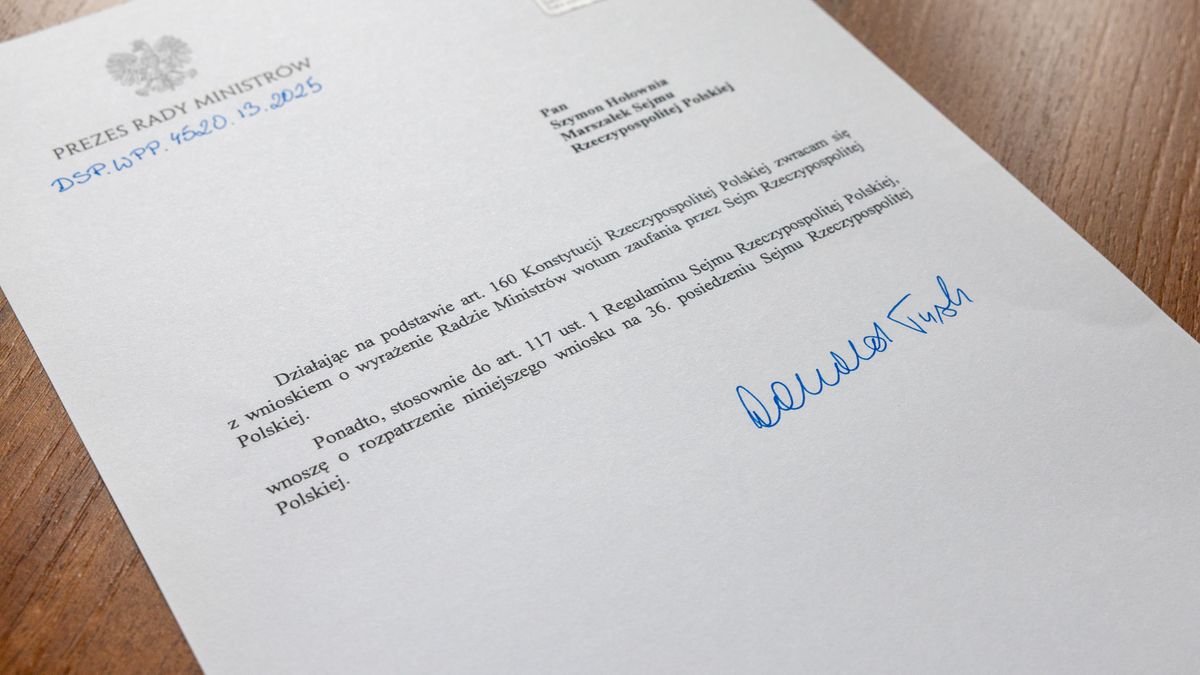 PREZES RADY MINISTRÓW
DSP.WPP.4520.13.2025
Pan
Szymon Hołownia
Marszałek Sejmu
Rzeczypospolitej Polskiej
Działając na podstawie art. 160 Konstytucji Rzeczypospolitej Polskiej zwracam się
z wnioskiem o wyrażenie Radzie Ministrów wotum zaufania przez Sejm Rzeczypospolitej
Polskiej.
Ponadto, stosownie do art. 117 ust. 1 Regulaminu Sejmu Rzeczypospolitej Polskiej,
wnoszę o rozpatrzenie niniejszego wniosku na 36. posiedzeniu Sejmu Rzeczypospolitej
Polskiej.
Donald Tusk